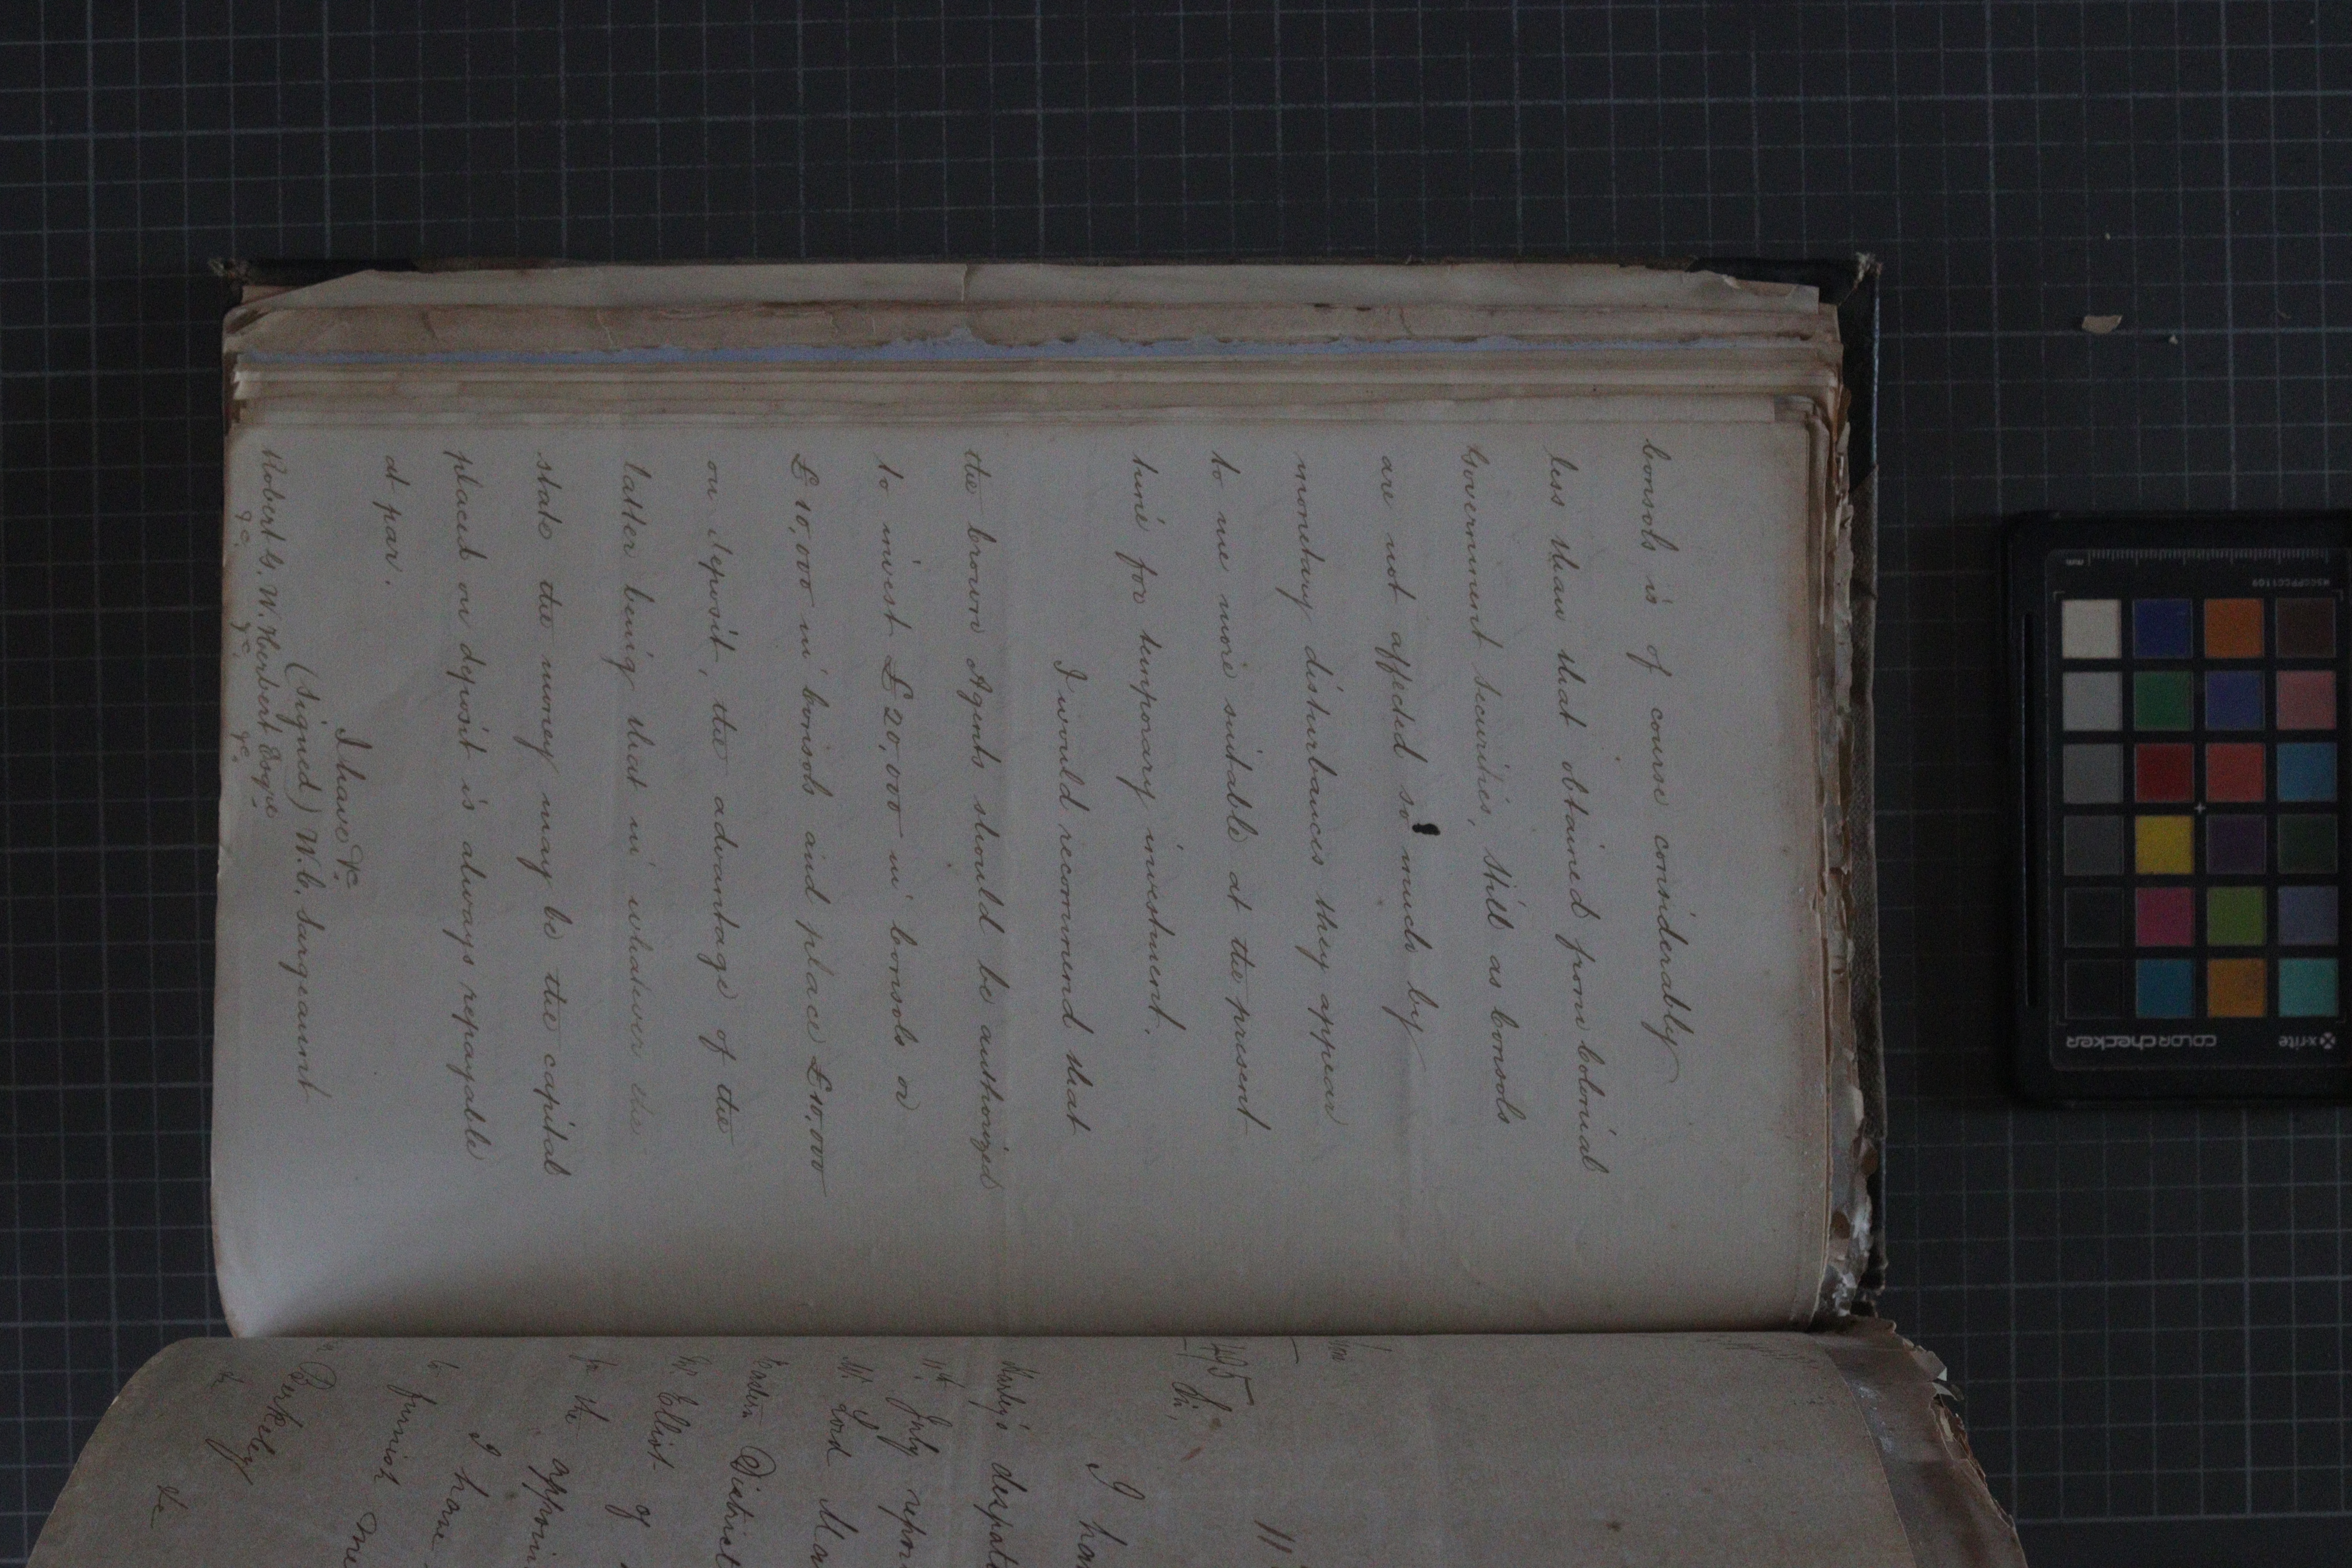 Consols is of course considerably
less than that obtained from Colonial
Government securities, still as Consols
are not affected so much by
monetary disturbances they appear
to me more suitable at the present
time for temporary investment.
I would recommend that
the Crown Agents should be authorized
to invest £20,000 in Consols or
£10,000 in Consols and place £10,000
on deposit, the advantage of the
latter being that in whatever the
state the money may be the capital
placed on deposit is always repayable
at par.
I have &c
(Signed) W.C. Sargeaunt
Robert G. W. Herbert Esqre
&c. &c. &c.
Sir,
I ha
Harley's despat
11th July repor
Mr Lord Ma
Eastern District
Mr Elliot of
to the appoin
I have
to furnish me
Berkeley
&c
mm
MSCCPPCC1109
colorchecker
x-rite